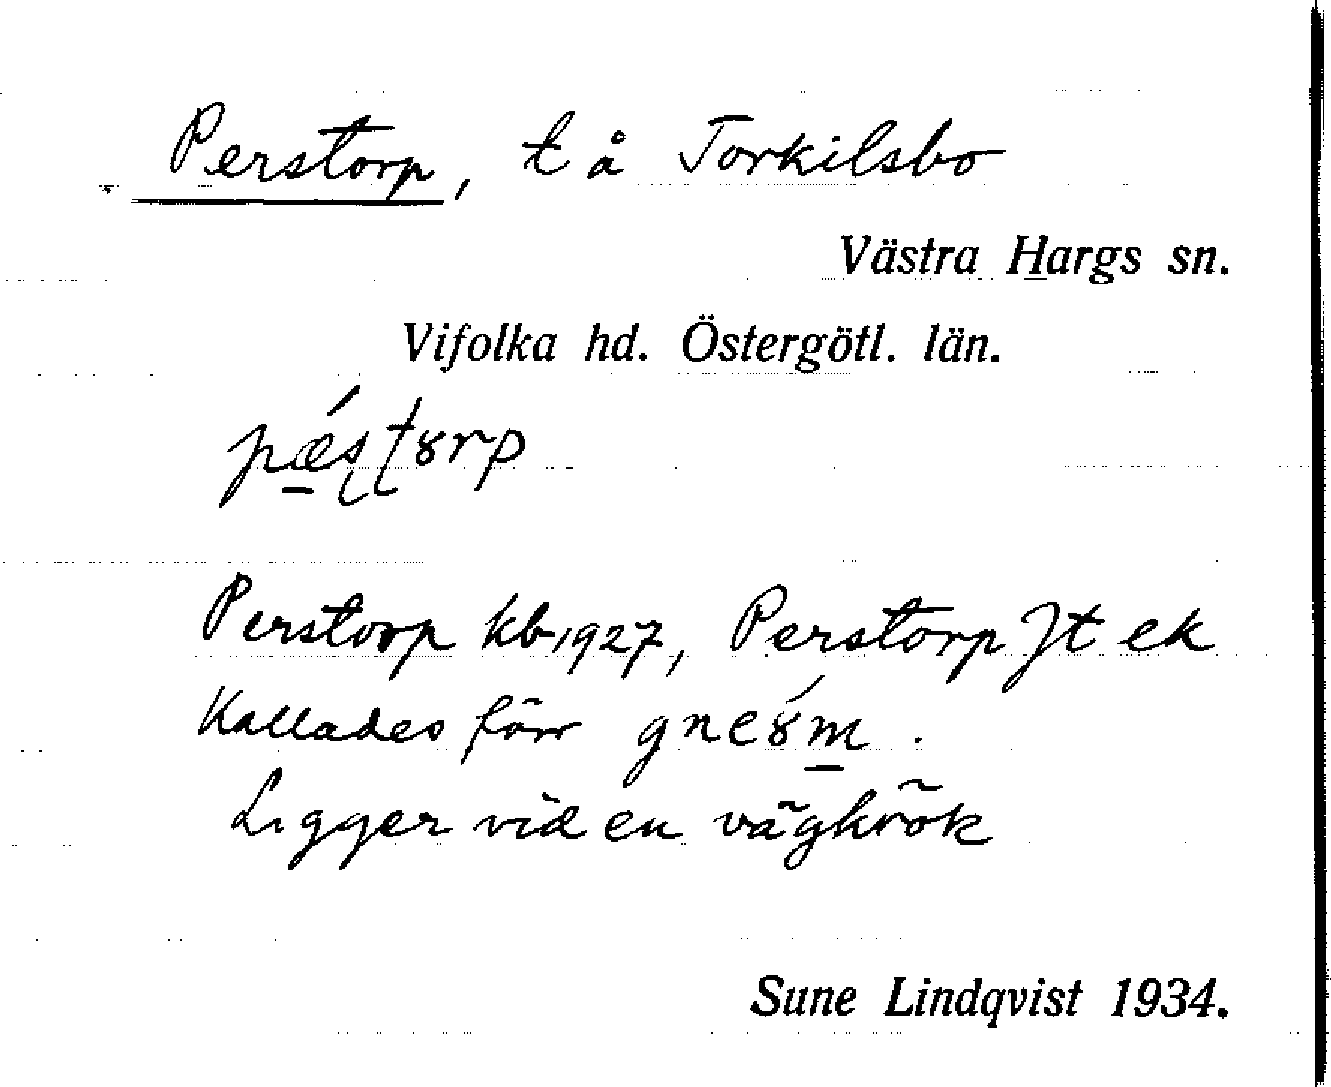 Perstorp, t å Torkilsbo
Västra Hargs sn.
Vifolka hd. Östergötl. län.
pǽ̠ʂʈȣrp
Perstorp kb 1927, Perstorp Jt ek
Kallades förr gneȣ́m̠.
Ligger vid en vägkrök
Sune Lindqvist 1934.